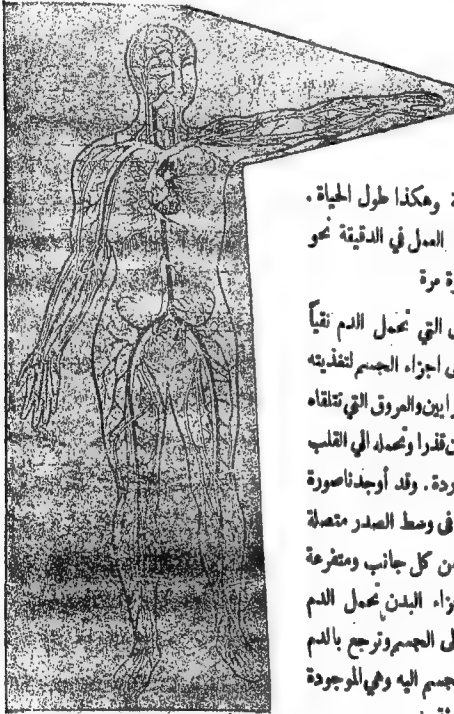 ة وهكذا طول الحياة .
العمل في الدقيقة نحو
رة مرة
التي تحمل الدم نقياً
اجزاء الجسم لتغذيته
رايين والعروق التي تتلقاه
ن قذرا وتحمله الي القلب
ردة . وقد أوجدنا صورة
فى وسط الصدر متصلة
من كل جانب ومتفرعة
زاء البدن تحمل الدم
لى الجسم وترجع بالدم
جسم اليه وهي الموجودة